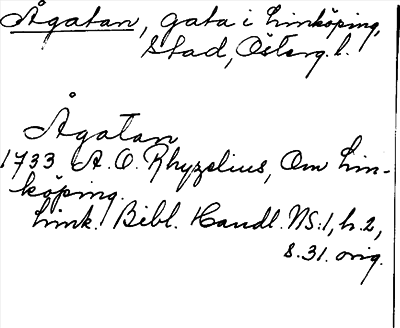 Ågatan, gata i Linköping,
stad, Österg. l.
Ågatan
1733 A. O. Rhyzelius, Om Lin-
köping.
Link. Bibl. Handl. NS:1, h. 2,
s. 31. orig.